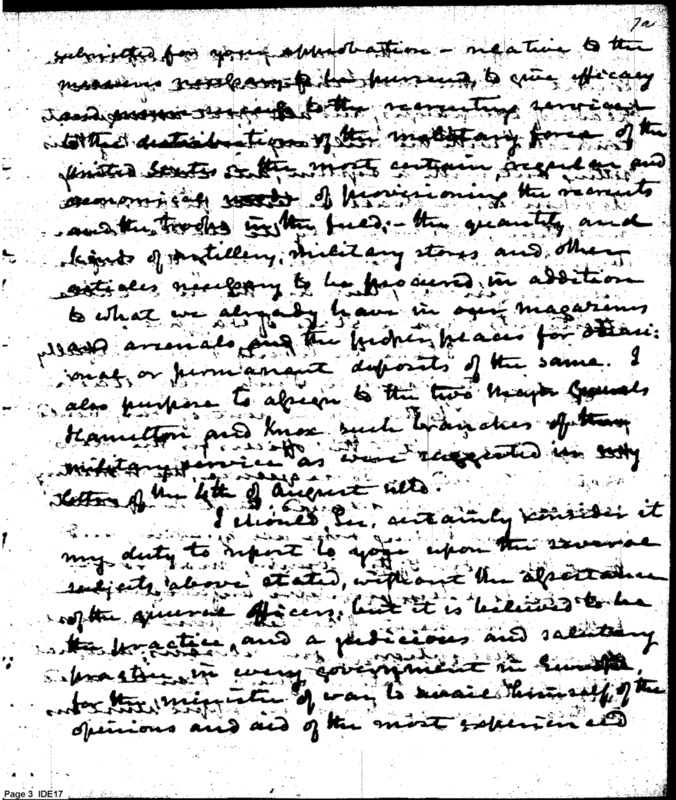 submitted for your approbation – relative to the
measures necessary to be pursued, to give efficacy
to the recruiting service –
to the distribution of the military force of the
United States – the most certain, regular and
economical mode of provisioning the recruits
and the troops in the field; – the quantity and
kinds of artillery, military stores and other
articles necessary to be procured in addition
to what we already have in our magazines
and arsenals, and the proper places for occasi:
onal or permanent deposits of the same. I
also purpose to assign to the two Major Generals
Hamilton and Knox such branches of the
military service as were suggested in my
letter of the 4th of August ulto.
I should, Sir, certainly consider it
my duty to report to you upon the several
subjects above stated, without the assistance
of the general officers; but it is believed to be
the practice, and a judicious and salutary
practice in every government in Europe,
for the minister of war to avail himself of the
opinions and aid of the most experienced
Page 3 IDE17